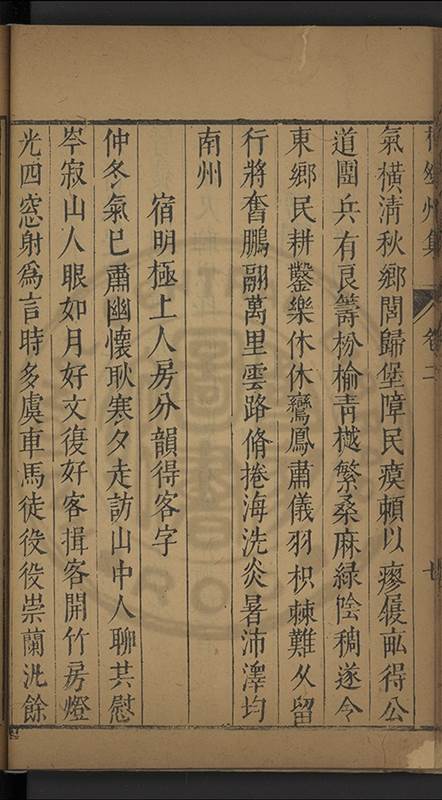 卷二
氣橫清秋鄉閭歸堡障民瘼頼以瘳屨畝得公
道團兵有良籌枌榆靑樾繁桑麻緑陰稠遂令
東鄉民耕鑿樂休休鸞鳳肅儀羽枳棘難久留
行將奮鵬翮萬里雲路脩捲海洗炎暑沛澤均
南州
宿明極上人房分韻得客字
仲冬氣巳肅幽懷耿寒夕走訪山中人聊其慰
岑寂山人眼如月好文復好客揖客開竹房燈
光四窓射爲言時多虞車馬徒役役崇蘭汎餘